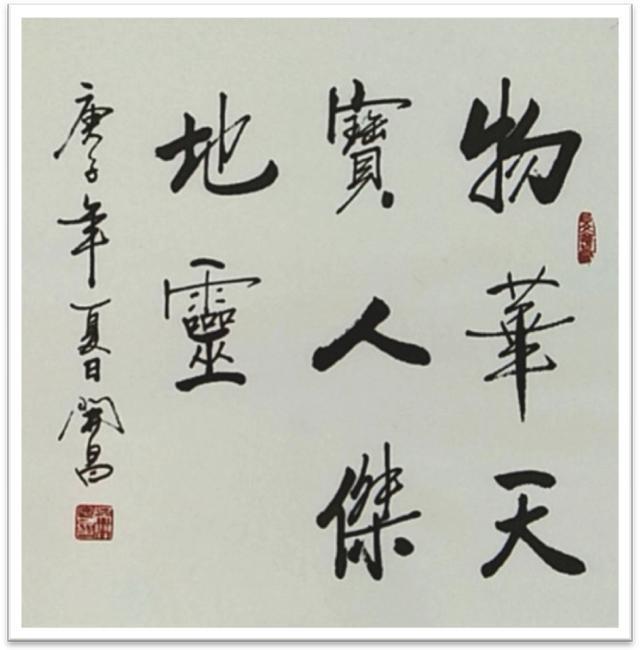 物華天
寶人傑
地靈
庚子年夏日開昌